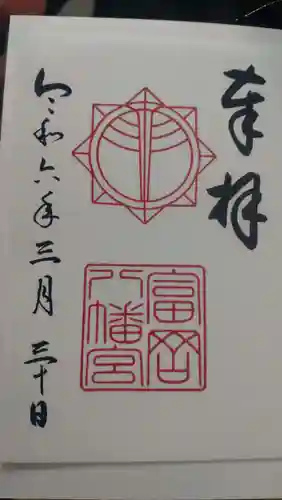 奉拝
富岡
八幡宮
令和六年三月三十日